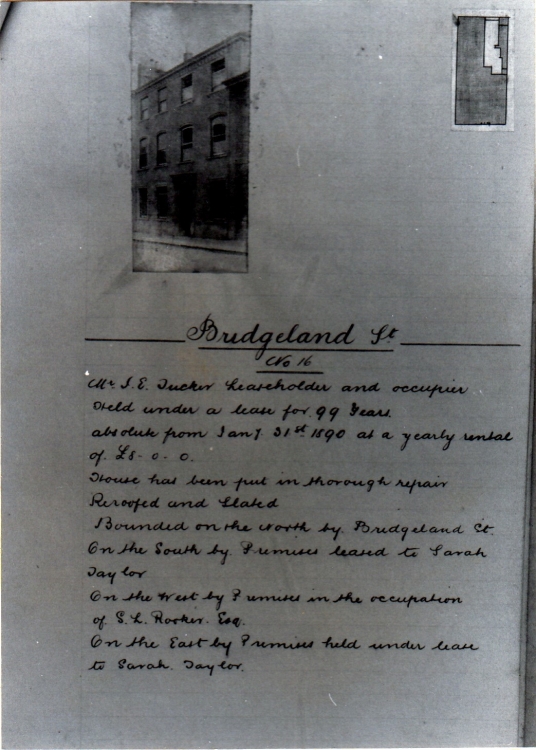 Bridgeland St
No 16
Mr. J. E. Tucker Leaseholder and occupier
Held under a lease for 99 Years
absolute from Jany. 31st 1890 at a yearly rental
of £8-0-0.
House has been put in thorough repair
Reroofed and Slated
Bounded on the North by Bridgeland St.
On the South by Premises leased to Sarah
Taylor
On the West by Premises in the occupation
of S. L. Rooker. Esq.
On the East by Premises held under lease
to Sarah. Taylor.